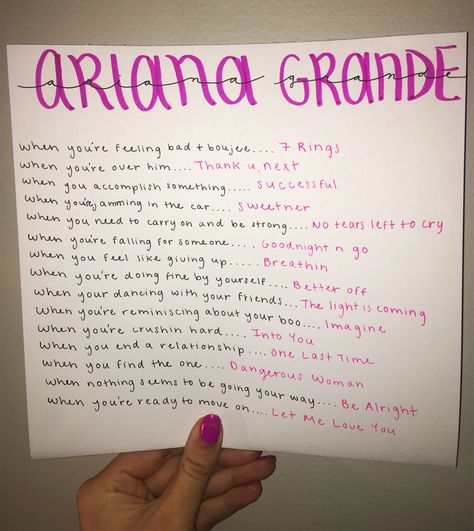 ARIANA GRANDE
ariana grande
when you're feeling bad + boujee.... 7 Rings
when you're over him.... Thank u, next
when you accomplish something..... successful
when you're jamming in the car.... Sweetner
when you need to carry on and be strong.... No tears left to cry
when you're falling for someone.... Goodnight n go
when you feel like giving up..... Breathin
when you're doing fine by yourself.... Better off
when your dancing with your friends... The light is coming
when you're reminiscing about your boo.... Imagine
when you're crushin hard..... Into You
when you end a relationship.... One Last Time
when you find the one.... Dangerous Woman
when nothing seems to be going your way.... Be Alright
when you're ready to move on.... Let Me Love You